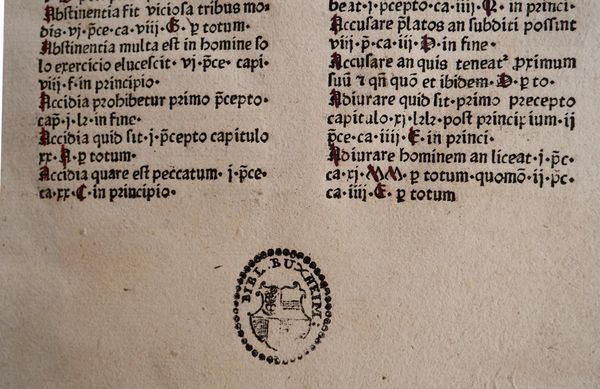 Abstinentia fit viciosa tribus mo⸗
dis·vj·p̄ce·ca·viij·G·ꝑ totum·
Abstinentia multa est in homine so
lo exercicio elucescit·vj·p̄ce·capi·
viij·f·in principio·
Accidia prohibetur primo p̄cepto·
cap̄·j·lꝛ·in fine·
Accidia quid sit·j·p̄cepto capitulo
xx·A·ꝑ totum·
Accidia quare est peccatum·j·p̄ce·
ca·xx·C·in principio·
beat·j·p̄cepto·ca·iiij·Q·in princi·
Accusare p̄latos an subditi possint
viij·p̄·ca·iij·D·in fine·
Accusare an quis teneatᷣ proximum
suū ⁊ qn̄ quō et ibidem·D·ꝑ to·
Adiurare quid sit·primo precepto
capitulo·xj·lꝛlꝛ·post principium·ij
p̄ce·ca·iiij·E·in princi·
Adiurare hominem an liceat·j·p̄c·
ca·xj·MM·ꝑ totum·quomō·ij·p̄c·
ca·iiij·E·ꝑ totum
BIBL. BUXHEIM: